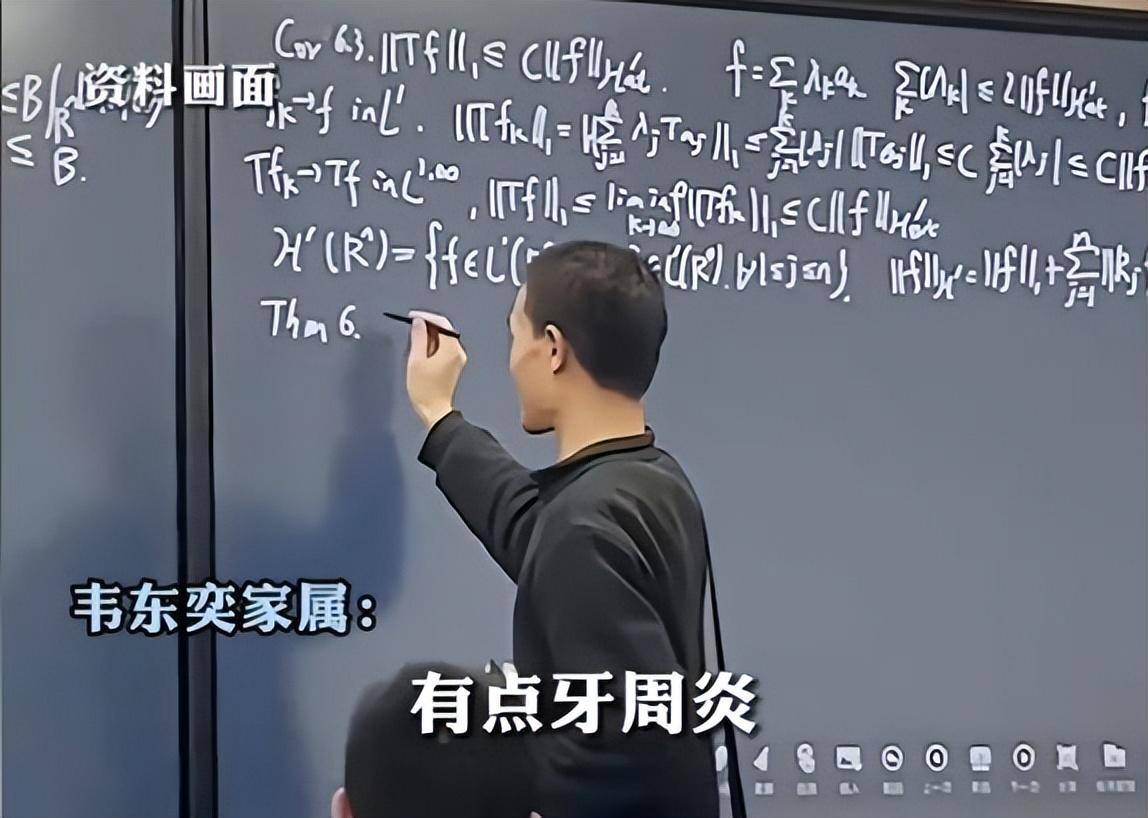 资料画面
≤B
≤ B.
Cor 6.3. ||Tf||₁ ≤ C||f||_{H¹at}. f = Σ_k λ_k a_k Σ_k |λ_k| ≤ 2||f||_{H¹at},
f_k→f in L¹. ||Tf_k||₁ = ||Σ_{j=1}^k λ_j Ta_j||₁ ≤ Σ_{j=1}^k |λ_j| ||Ta_j||₁ ≤ C Σ_{j=1}^k |λ_j| ≤ C||f
Tf_k→Tf in L^{1,∞}, ||Tf||₁ ≤ lim inf_{k→∞} ||Tf_k||₁ ≤ C||f||_{H¹at}
H¹(Rⁿ) = {f∈L¹( ∈L¹(Rⁿ). ∀1≤j≤n}. ||f||_{H¹} = ||f||₁ + Σ_{j=1}^n ||R_j
Thm 6.
韦东奕家属：
有点牙周炎